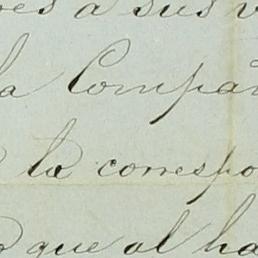 a sus
la Compañ
la correspo
que al ha